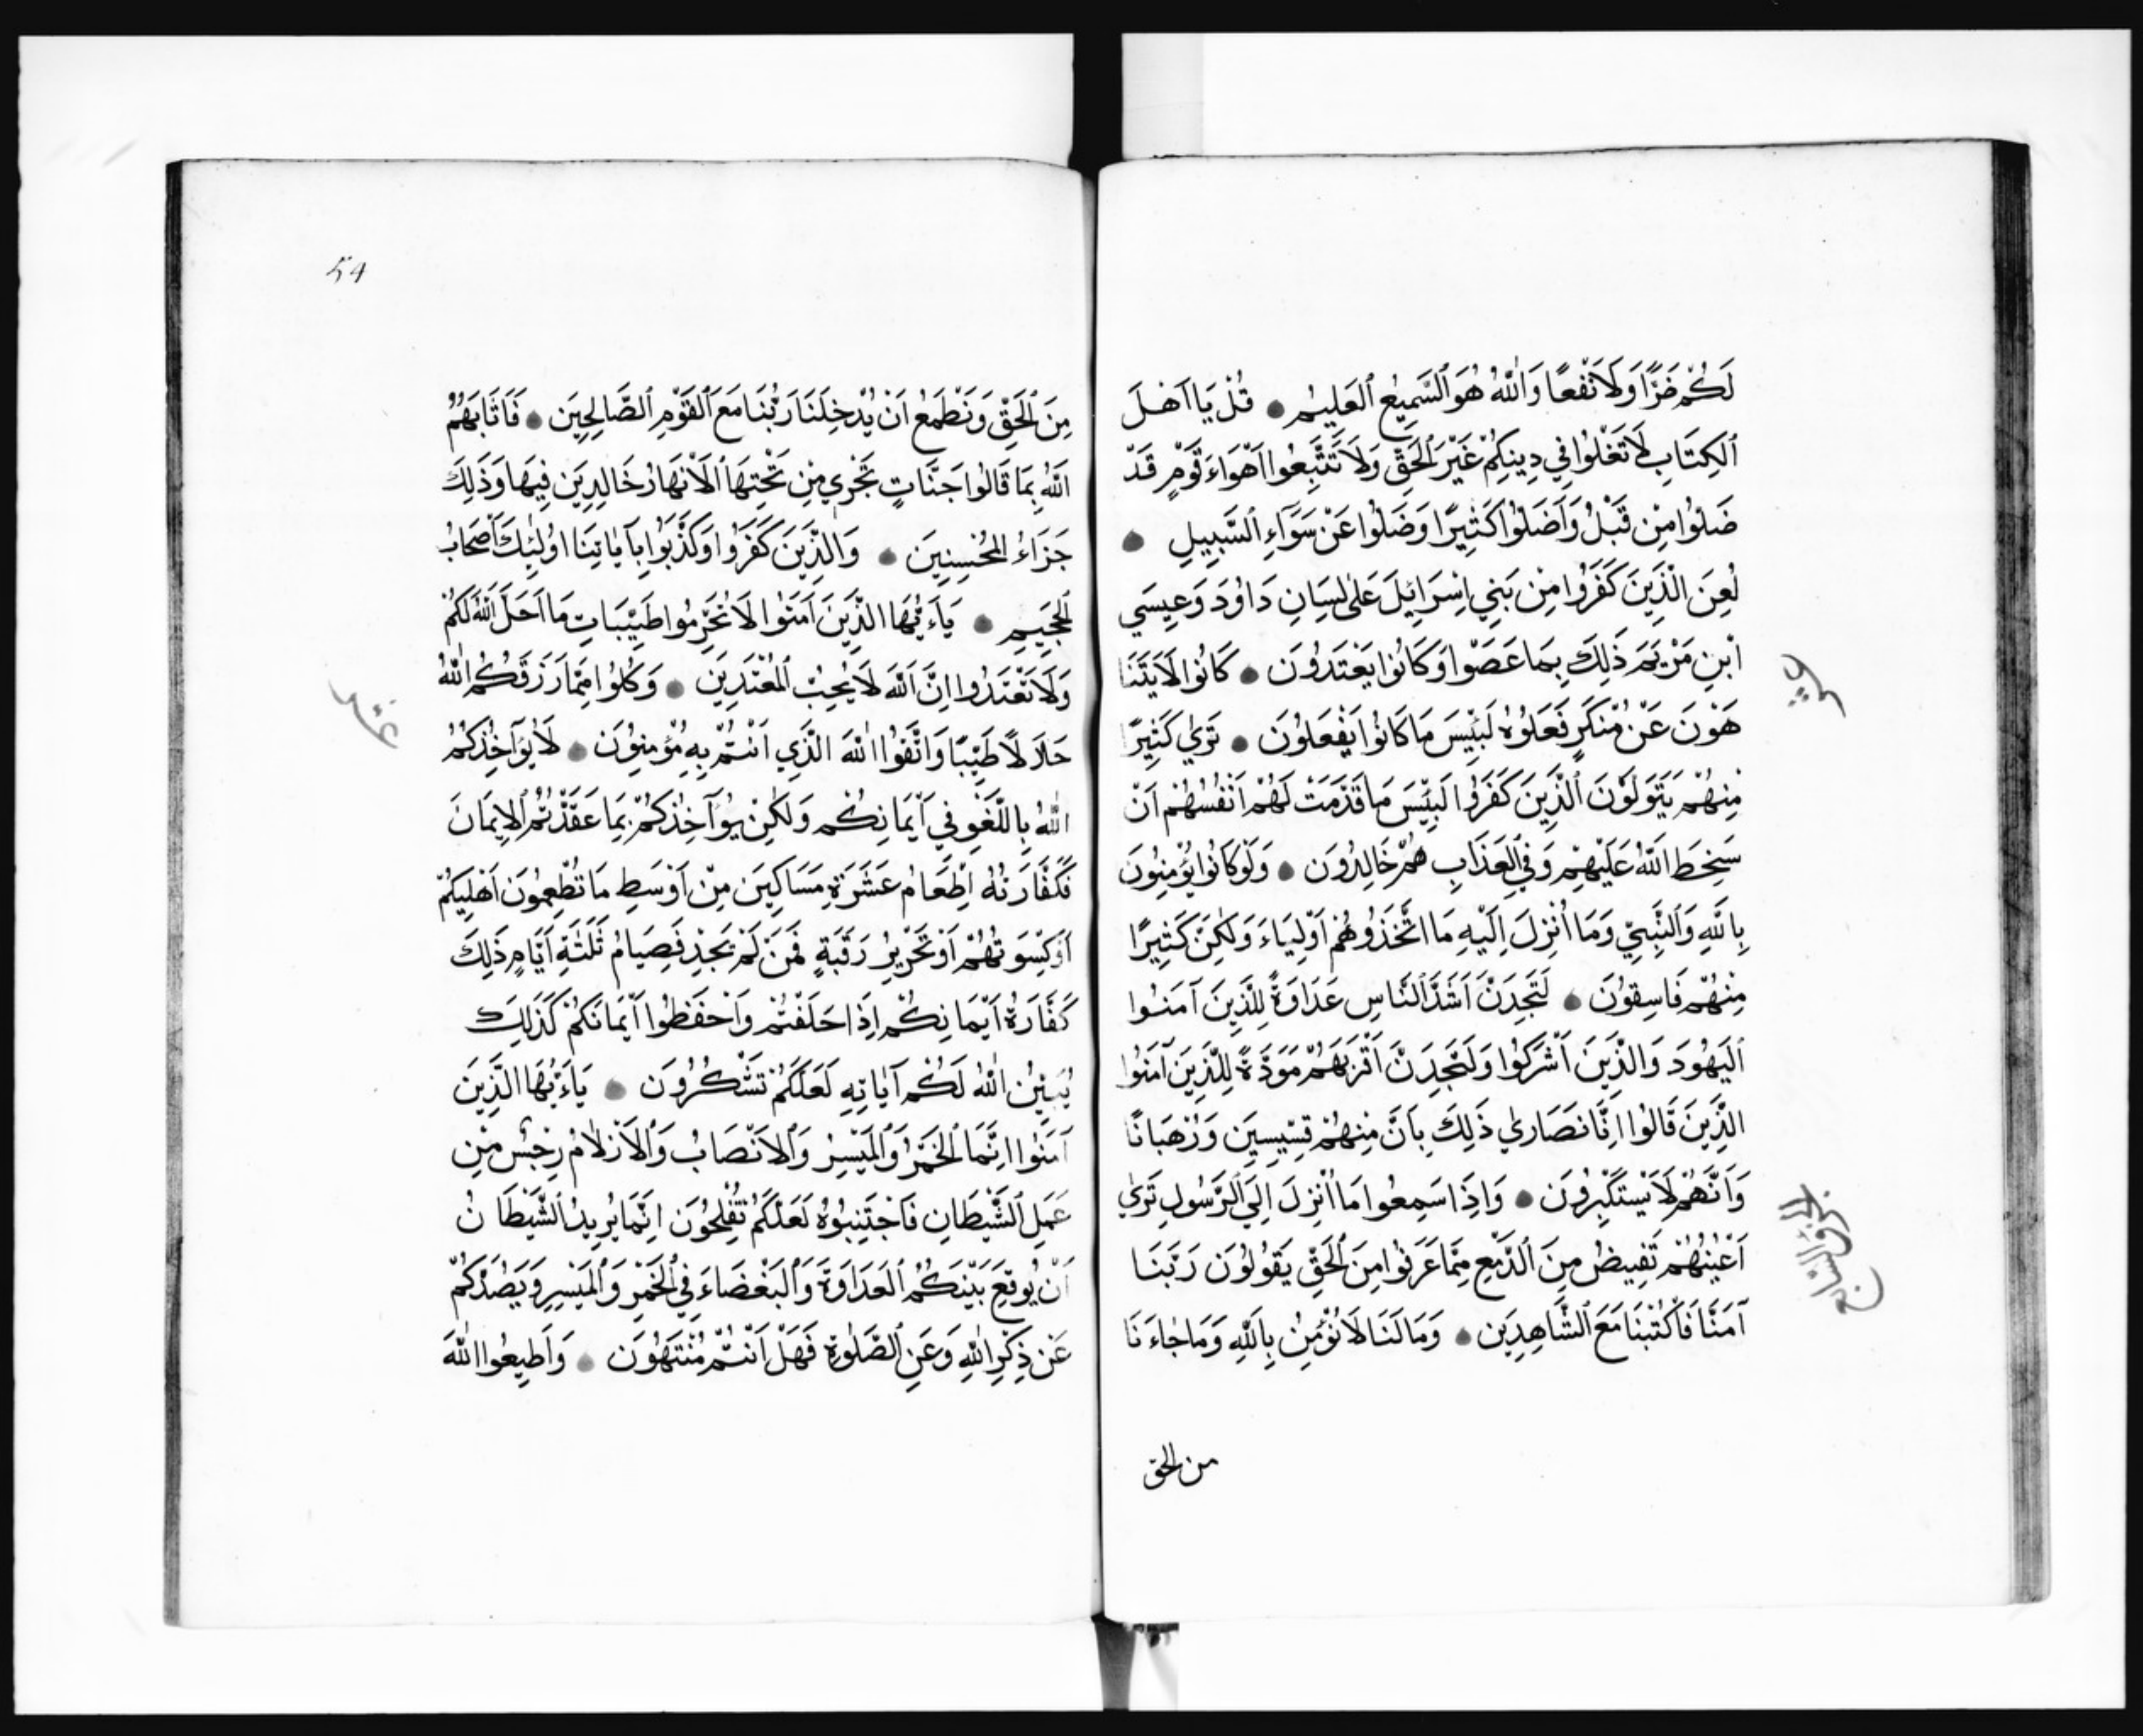 لَكُمْ ضَرًّا وَلَا نَفْعًا وَاللّٰهُ هُوَ السَّمِيعُ الْعَلِيمُ ● قُلْ يَا اَهْلَ
الْكِتَابِ لَا تَغْلُوا فِي دِينِكُمْ غَيْرَ الْحَقِّ وَلَا تَتَّبِعُوا اَهْوَاءَ قَوْمٍ قَدْ
ضَلُّوا مِنْ قَبْلُ وَاَضَلُّوا كَثِيرًا وَضَلُّوا عَنْ سَوَآءِ السَّبِيلِ ●
لُعِنَ الَّذِينَ كَفَرُوا مِنْ بَنِي اِسْرَائِيلَ عَلٰى لِسَانِ دَاوُدَ وَعِيسَي
ابْنِ مَرْيَمَ ذَلِكَ بِمَا عَصَوْا وَكَانُوا يَعْتَدُونَ ● كَانُوا لَا يَتَنَا
هَوْنَ عَنْ مُنْكَرٍ فَعَلُوهُ لَبِئْسَ مَا كَانُوا يَفْعَلُونَ ● تَرٰي كَثِيرًا
مِنْهُمْ يَتَوَلَّوْنَ الَّذِينَ كَفَرُوا لَبِئْسَ مَا قَدَّمَتْ لَهُمْ اَنْفُسُهُمْ اَنْ
سَخِطَ اللّٰهُ عَلَيْهِمْ وَفِي الْعَذَابِ هُمْ خَالِدُونَ ● وَلَوْ كَانُوا يُؤْمِنُونَ
بِاللّٰهِ وَالنَّبِيِّ وَمَا اُنْزِلَ اِلَيْهِ مَا اتَّخَذُوهُمْ اَوْلِيَاءَ وَلٰكِنَّ كَثِيرًا
مِنْهُمْ فَاسِقُونَ ● لَتَجِدَنَّ اَشَدَّ النَّاسِ عَدَاوَةً لِلَّذِينَ آمَنُوا
الْيَهُودَ وَالَّذِينَ اَشْرَكُوا وَلَتَجِدَنَّ اَقْرَبَهُمْ مَوَدَّةً لِلَّذِينَ آمَنُوا
الَّذِينَ قَالُوا اِنَّا نَصَارٰي ذَلِكَ بِاَنَّ مِنْهُمْ قِسِّيسِينَ وَرُهْبَانًا
وَاَنَّهُمْ لَا يَسْتَكْبِرُونَ ● وَاِذَا سَمِعُوا مَا اُنْزِلَ اِلَي الرَّسُولِ تَرٰي
اَعْيُنَهُمْ تَفِيضُ مِنَ الدَّمْعِ مِمَّا عَرَفُوا مِنَ الْحَقِّ يَقُولُونَ رَبَّنَا
آمَنَّا فَاكْتُبْنَا مَعَ الشَّاهِدِينَ ● وَمَا لَنَا لَا نُؤْمِنُ بِاللّٰهِ وَمَا جَاءَنَا
من الحق
54
مِنَ الْحَقِّ وَنَطْمَعُ اَنْ يُدْخِلَنَا رَبُّنَا مَعَ الْقَوْمِ الصَّالِحِينَ ● فَاَثَابَهُمُ
اللّٰهُ بِمَا قَالُوا جَنَّاتٍ تَجْرِي مِنْ تَحْتِهَا الْاَنْهَارُ خَالِدِينَ فِيهَا وَذَلِكَ
جَزَاءُ الْمُحْسِنِينَ ● وَالَّذِينَ كَفَرُوا وَكَذَّبُوا بِآيَاتِنَا اُولٰئِكَ اَصْحَابُ
الْجَحِيمِ ● يَاءَيُّهَا الَّذِينَ آمَنُوا لَا تُحَرِّمُوا طَيِّبَاتِ مَا اَحَلَّ اللّٰهُ لَكُمْ
وَلَا تَعْتَدُوا اِنَّ اللّٰهَ لَا يُحِبُّ الْمُعْتَدِينَ ● وَكُلُوا مِمَّا رَزَقَكُمُ اللّٰهُ
حَلَالًا طَيِّبًا وَاتَّقُوا اللّٰهَ الَّذِي اَنْتُمْ بِهِ مُؤْمِنُونَ ● لَا يُؤَآخِذُكُمُ
اللّٰهُ بِاللَّغْوِ فِي اَيْمَانِكُمْ وَلٰكِنْ يُؤَآخِذُكُمْ بِمَا عَقَّدْتُمُ الْاِيمَانَ
فَكَفَّارَتُهُ اِطْعَامُ عَشَرَةِ مَسَاكِينَ مِنْ اَوْسَطِ مَا تُطْعِمُونَ اَهْلِيكُمْ
اَوْ كِسْوَتُهُمْ اَوْ تَحْرِيرُ رَقَبَةٍ فَمَنْ لَمْ يَجِدْ فَصِيَامُ ثَلٰثَةِ اَيَّامٍ ذَلِكَ
كَفَّارَةُ اَيْمَانِكُمْ اِذَا حَلَفْتُمْ وَاحْفَظُوا اَيْمَانَكُمْ كَذَلِكَ
يُبَيِّنُ اللّٰهُ لَكُمْ آيَاتِهِ لَعَلَّكُمْ تَشْكُرُونَ ● يَاءَيُّهَا الَّذِينَ
آمَنُوا اِنَّمَا الْخَمْرُ وَالْمَيْسِرُ وَالْاَنْصَابُ وَالْاَزْلَامُ رِجْسٌ مِنْ
عَمَلِ الشَّيْطَانِ فَاجْتَنِبُوهُ لَعَلَّكُمْ تُفْلِحُونَ اِنَّمَا يُرِيدُ الشَّيْطَانُ
اَنْ يُوقِعَ بَيْنَكُمُ الْعَدَاوَةَ وَالْبَغْضَاءَ فِي الْخَمْرِ وَالْمَيْسِرِ وَيَصُدَّكُمْ
عَنْ ذِكْرِ اللّٰهِ وَعَنِ الصَّلٰوةِ فَهَلْ اَنْتُمْ مُنْتَهُونَ ● وَاَطِيعُوا اللّٰهَ